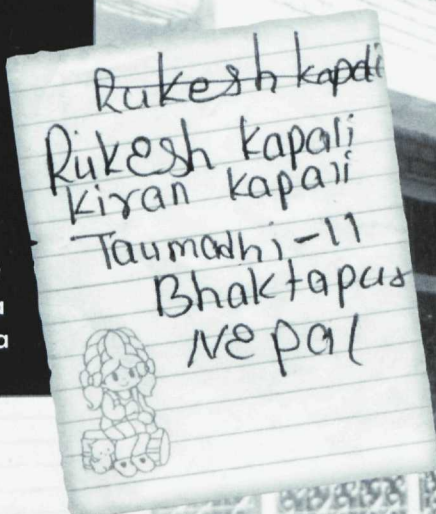 Rukesh kapali
Rukesh kapali
kiran kapali
Taumadhi-11
Bhaktapur
Nepal
a
a